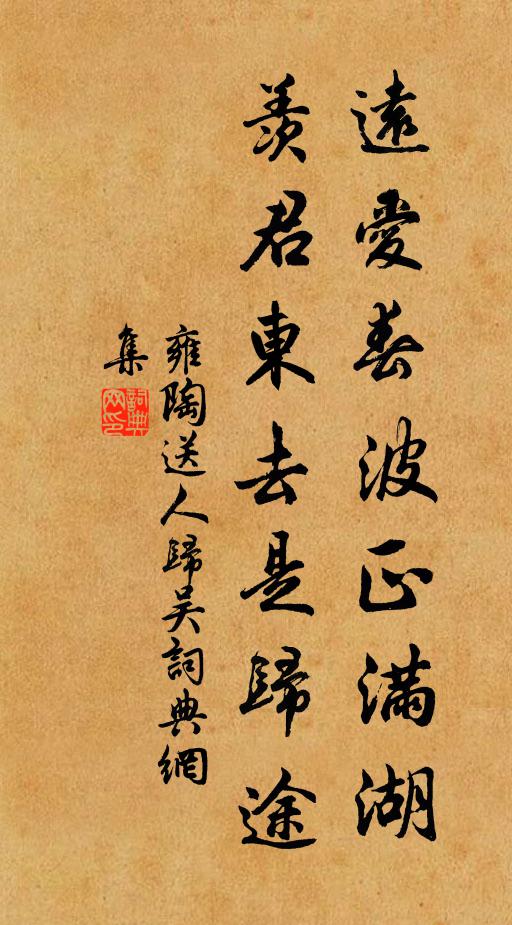 遠愛春波正滿湖
羨君東去是歸途
雍陶送人歸吴詞典網
集
詞典
网印